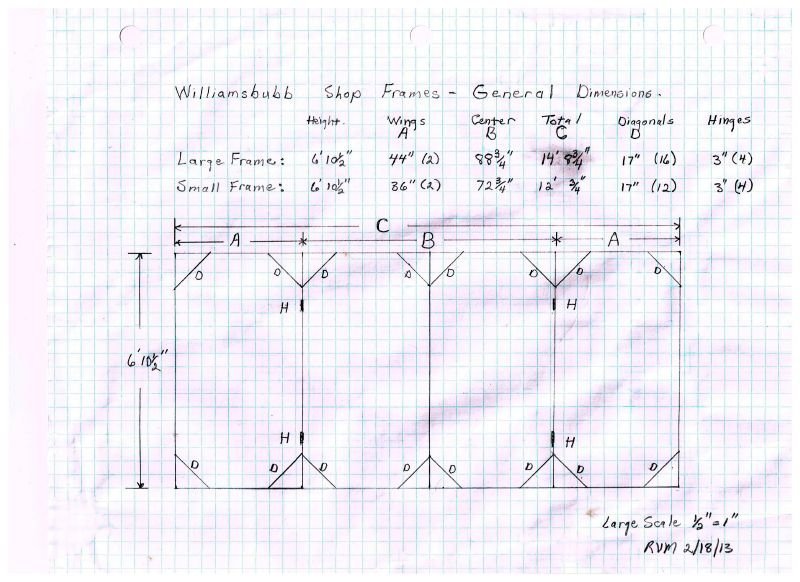 Williamsbubb Shop Frames - General Dimensions.
Height. Wings Center Total Diagonals Hinges
A B C D
Large Frame: 6'10½" 44" (2) 88¾" 14' 8¾" 17" (16) 3" (4)
Small Frame: 6'10½" 36" (2) 72¾" 12' ¾" 17" (12) 3" (4)
C
A B A
D D D D D D D D
H H
6'10½"
H H
D D D D D D D D
Large Scale ½"=1"
RVM 2/18/13